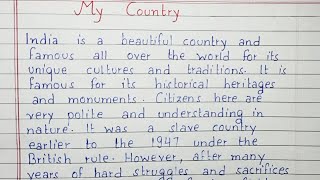 My Country
India is a beautiful country and
famous all over the world for its
unique cultures and traditions. It is
famous for its historical heritages
and monuments. Citizens here are
very polite and understanding in
nature. It was a slave country
earlier to the 1947 under the
British rule. However, after many
years of hard struggles and sacrifices